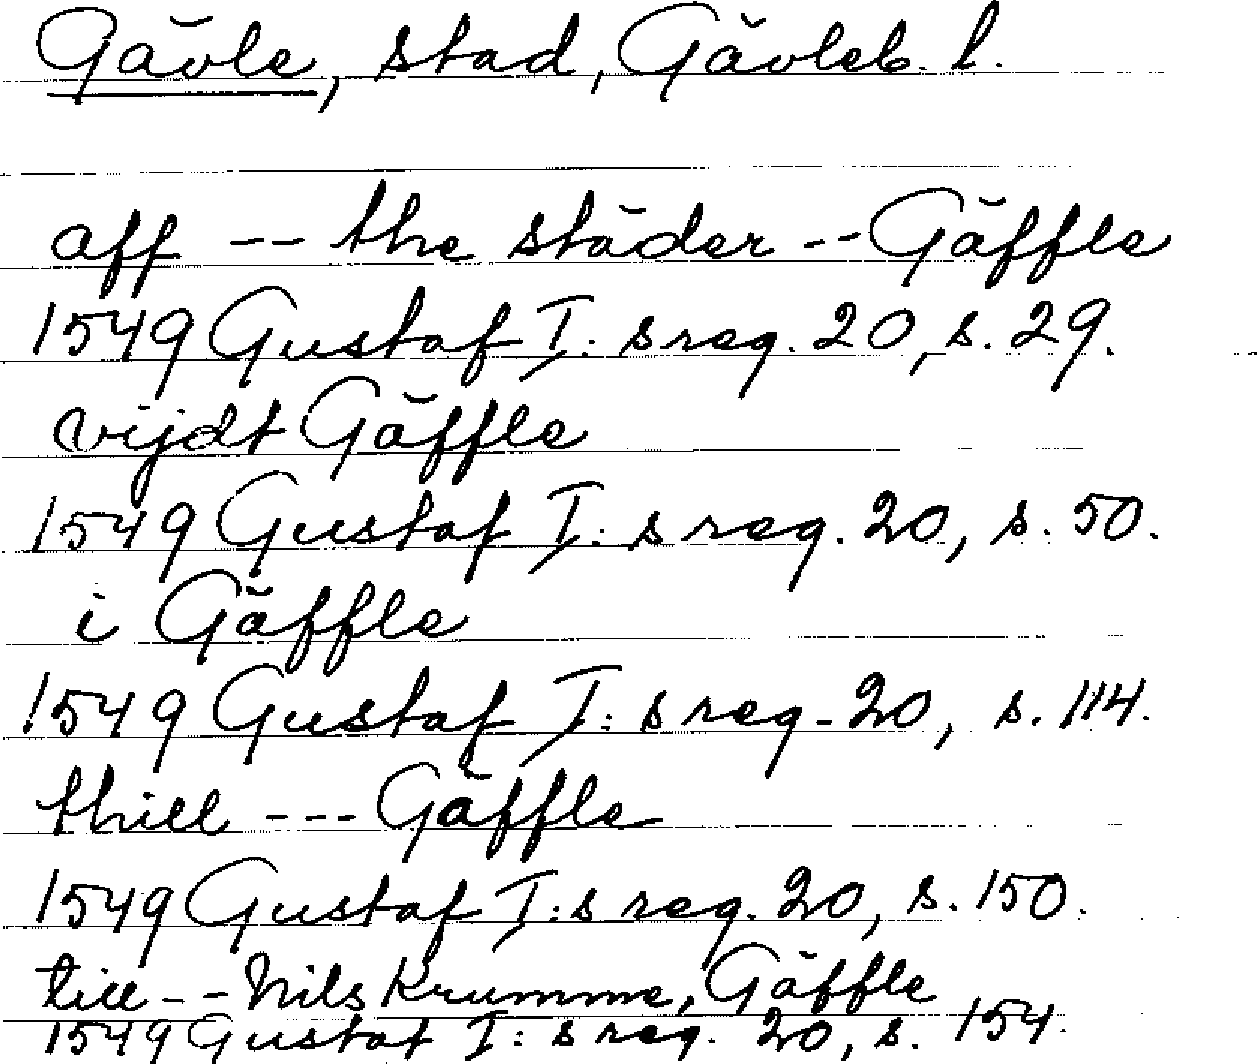 Gävle, stad, Gävleb. l.
aff -- the städer -- Gäffle
1549 Gustaf I: s reg. 20, s. 29.
vijdt Gäffle
1549 Gustaf I: s reg. 20, s. 50.
i Gäffle
1549 Gustaf I: s reg. 20, s. 114.
thill --- Gäffle
1549 Gustaf I: s reg. 20, s. 150.
till -- Nils Krumme, Gäffle
1549 Gustaf I: s reg. 20, s. 154.